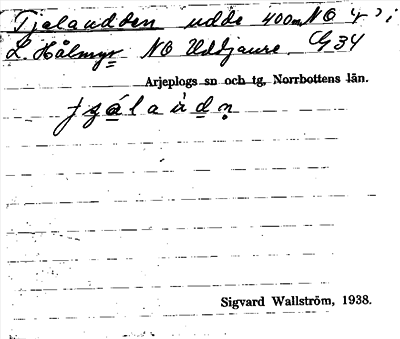 Tjelaudden udde 400m NO
L. Hålmyr NO Uddjaure G34
Arjeplogs sn och tg, Norrbottens län.
Sigvard Wallström, 1938.